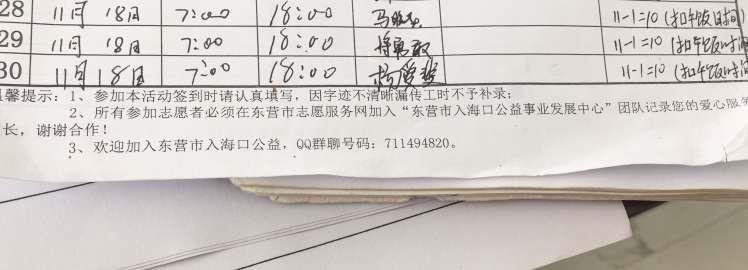 28 11月 18日 7:00 18:00 11-1=10(扣午饭时间
29 11月 18日 7:00 18:00 11-1=10(扣午饭时间
30 11月 18日 7:00 18:00 11-1=10(扣午饭时间
温馨提示：1、参加本活动签到时请认真填写，因字迹不清晰漏传工时不予补录；
2、所有参加志愿者必须在东营市志愿服务网加入“东营市入海口公益事业发展中心”团队记录您的爱心服务
长，谢谢合作！
3、欢迎加入东营市入海口公益，QQ群聊号码：711494820。